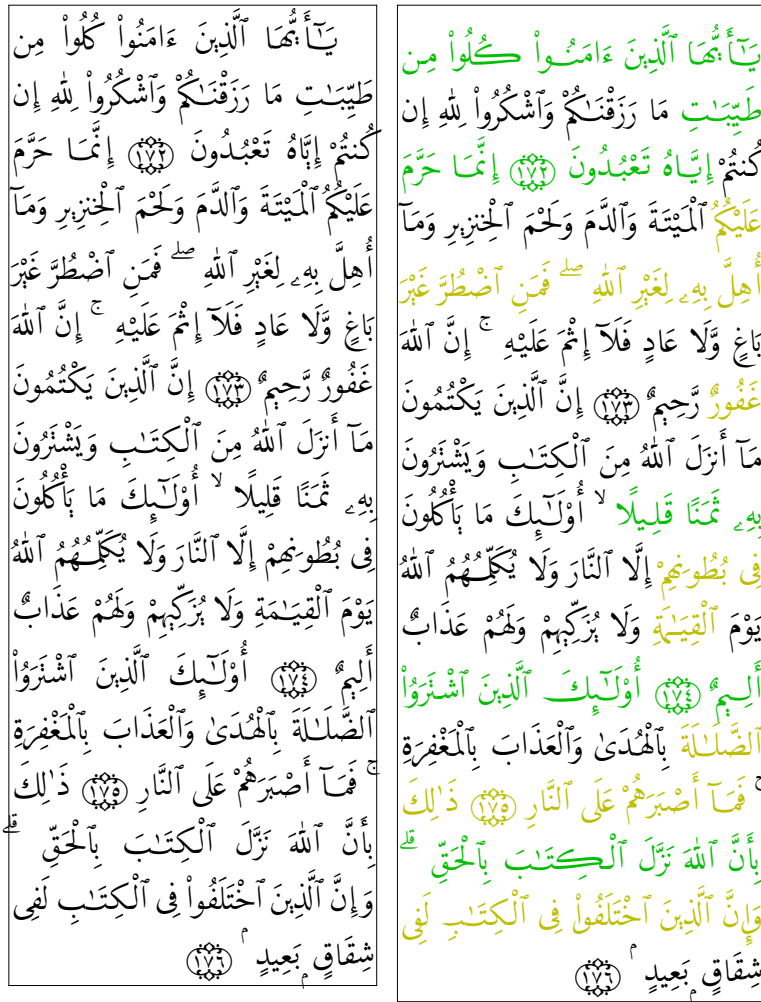 يَـٰٓأَيُّهَا ٱلَّذِينَ ءَامَنُواْ كُلُواْ مِن
طَيِّبَـٰتِ مَا رَزَقْنَـٰكُمْ وَٱشْكُرُواْ لِلَّهِ إِن
كُنتُمْ إِيَّاهُ تَعْبُدُونَ ١٧٢ إِنَّمَا حَرَّمَ
عَلَيْكُمُ ٱلْمَيْتَةَ وَٱلدَّمَ وَلَحْمَ ٱلْخِنزِيرِ وَمَآ
أُهِلَّ بِهِۦ لِغَيْرِ ٱللَّهِ ۖ فَمَنِ ٱضْطُرَّ غَيْرَ
بَاغٍ وَّلَا عَادٍ فَلَآ إِثْمَ عَلَيْهِ ۚ إِنَّ ٱللَّهَ
غَفُورٌ رَّحِيمٌ ١٧٣ إِنَّ ٱلَّذِينَ يَكْتُمُونَ
مَآ أَنزَلَ ٱللَّهُ مِنَ ٱلْكِتَـٰبِ وَيَشْتَرُونَ
بِهِۦ ثَمَنًا قَلِيلًا ۙ أُوْلَـٰٓئِكَ مَا يَأْكُلُونَ
فِى بُطُونِهِمْ إِلَّا ٱلنَّارَ وَلَا يُكَلِّمُهُمُ ٱللَّهُ
يَوْمَ ٱلْقِيَـٰمَةِ وَلَا يُزَكِّيهِمْ وَلَهُمْ عَذَابٌ
أَلِيمٌ ١٧٤ أُوْلَـٰٓئِكَ ٱلَّذِينَ ٱشْتَرَوُاْ
ٱلضَّلَـٰلَةَ بِٱلْهُدَىٰ وَٱلْعَذَابَ بِٱلْمَغْفِرَةِ
ۚ فَمَآ أَصْبَرَهُمْ عَلَى ٱلنَّارِ ١٧٥ ذَٰلِكَ
بِأَنَّ ٱللَّهَ نَزَّلَ ٱلْكِتَـٰبَ بِٱلْحَقِّ ۗ
وَإِنَّ ٱلَّذِينَ ٱخْتَلَفُواْ فِى ٱلْكِتَـٰبِ لَفِى
شِقَاقٍۭ بَعِيدٍ ۢ ١٧٦
يَـٰٓأَيُّهَا ٱلَّذِينَ ءَامَنُواْ كُلُواْ مِن
طَيِّبَـٰتِ مَا رَزَقْنَـٰكُمْ وَٱشْكُرُواْ لِلَّهِ إِن
كُنتُمْ إِيَّاهُ تَعْبُدُونَ ١٧٢ إِنَّمَا حَرَّمَ
عَلَيْكُمُ ٱلْمَيْتَةَ وَٱلدَّمَ وَلَحْمَ ٱلْخِنزِيرِ وَمَآ
أُهِلَّ بِهِۦ لِغَيْرِ ٱللَّهِ ۖ فَمَنِ ٱضْطُرَّ غَيْرَ
بَاغٍ وَّلَا عَادٍ فَلَآ إِثْمَ عَلَيْهِ ۚ إِنَّ ٱللَّهَ
غَفُورٌ رَّحِيمٌ ١٧٣ إِنَّ ٱلَّذِينَ يَكْتُمُونَ
مَآ أَنزَلَ ٱللَّهُ مِنَ ٱلْكِتَـٰبِ وَيَشْتَرُونَ
بِهِۦ ثَمَنًا قَلِيلًا ۙ أُوْلَـٰٓئِكَ مَا يَأْكُلُونَ
فِى بُطُونِهِمْ إِلَّا ٱلنَّارَ وَلَا يُكَلِّمُهُمُ ٱللَّهُ
يَوْمَ ٱلْقِيَـٰمَةِ وَلَا يُزَكِّيهِمْ وَلَهُمْ عَذَابٌ
أَلِيمٌ ١٧٤ أُوْلَـٰٓئِكَ ٱلَّذِينَ ٱشْتَرَوُاْ
ٱلضَّلَـٰلَةَ بِٱلْهُدَىٰ وَٱلْعَذَابَ بِٱلْمَغْفِرَةِ
ۚ فَمَآ أَصْبَرَهُمْ عَلَى ٱلنَّارِ ١٧٥ ذَٰلِكَ
بِأَنَّ ٱللَّهَ نَزَّلَ ٱلْكِتَـٰبَ بِٱلْحَقِّ ۗ
وَإِنَّ ٱلَّذِينَ ٱخْتَلَفُواْ فِى ٱلْكِتَـٰبِ لَفِى
شِقَاقٍۭ بَعِيدٍ ۢ ١٧٦